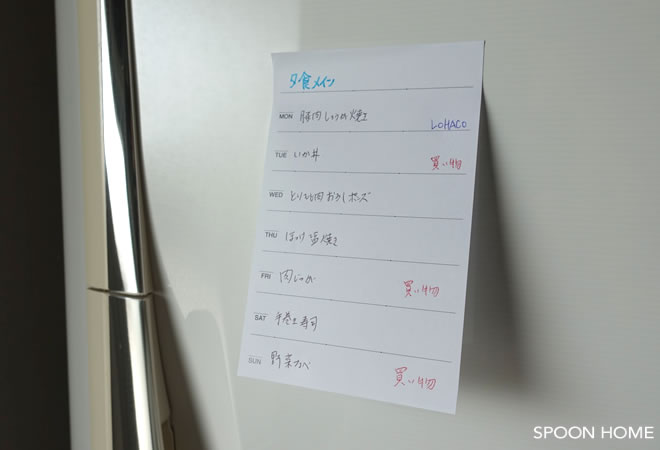 夕食メイン
MON 豚肉しょうが焼き
LOHACO
TUE いか丼
買い物
WED とりむね肉おろしポンズ
THU ほっけ塩焼き
FRI 肉じゃが
買い物
SAT 手巻き寿司
SUN 野菜ナベ
買い物
SPOON HOME